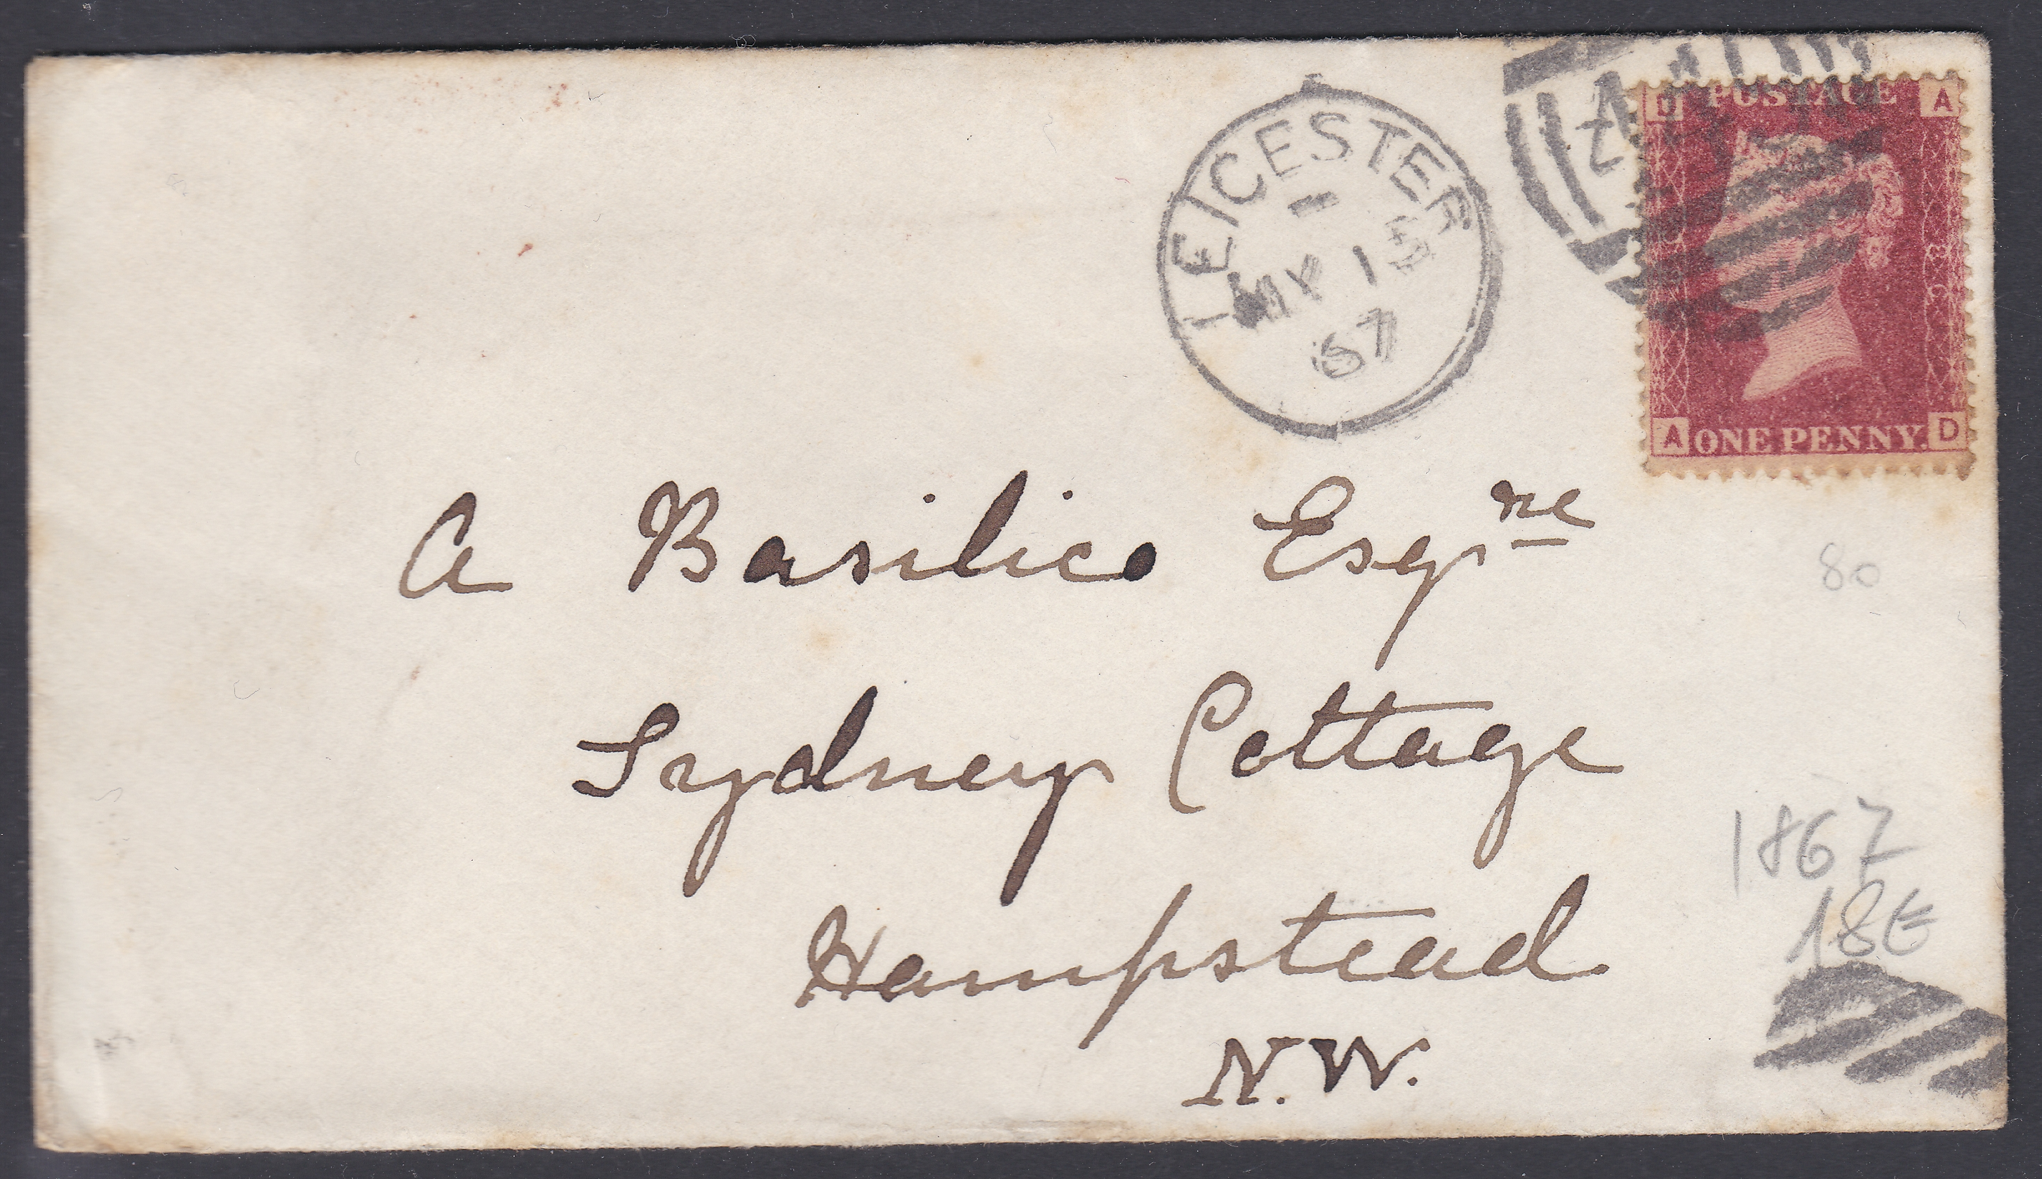 LEICESTER
MY 15
67
POSTAGE A
A ONE PENNY. D
A Basilico Esqre
Sydney Cottage
Hampstead
N.W.
80
1867
18€